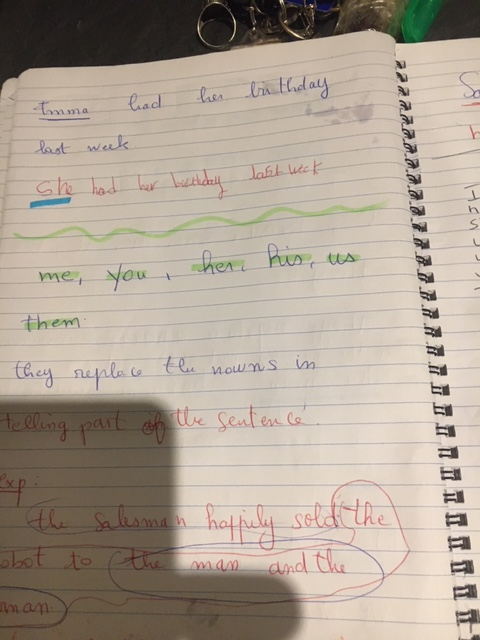 Emma had her birthday
last week
She had her birthday last week
me, you, her, his, us
them.
they replace the nouns in
telling part of the sentence.
exp:
the salesman happily sold the
obot to the man and the
man.